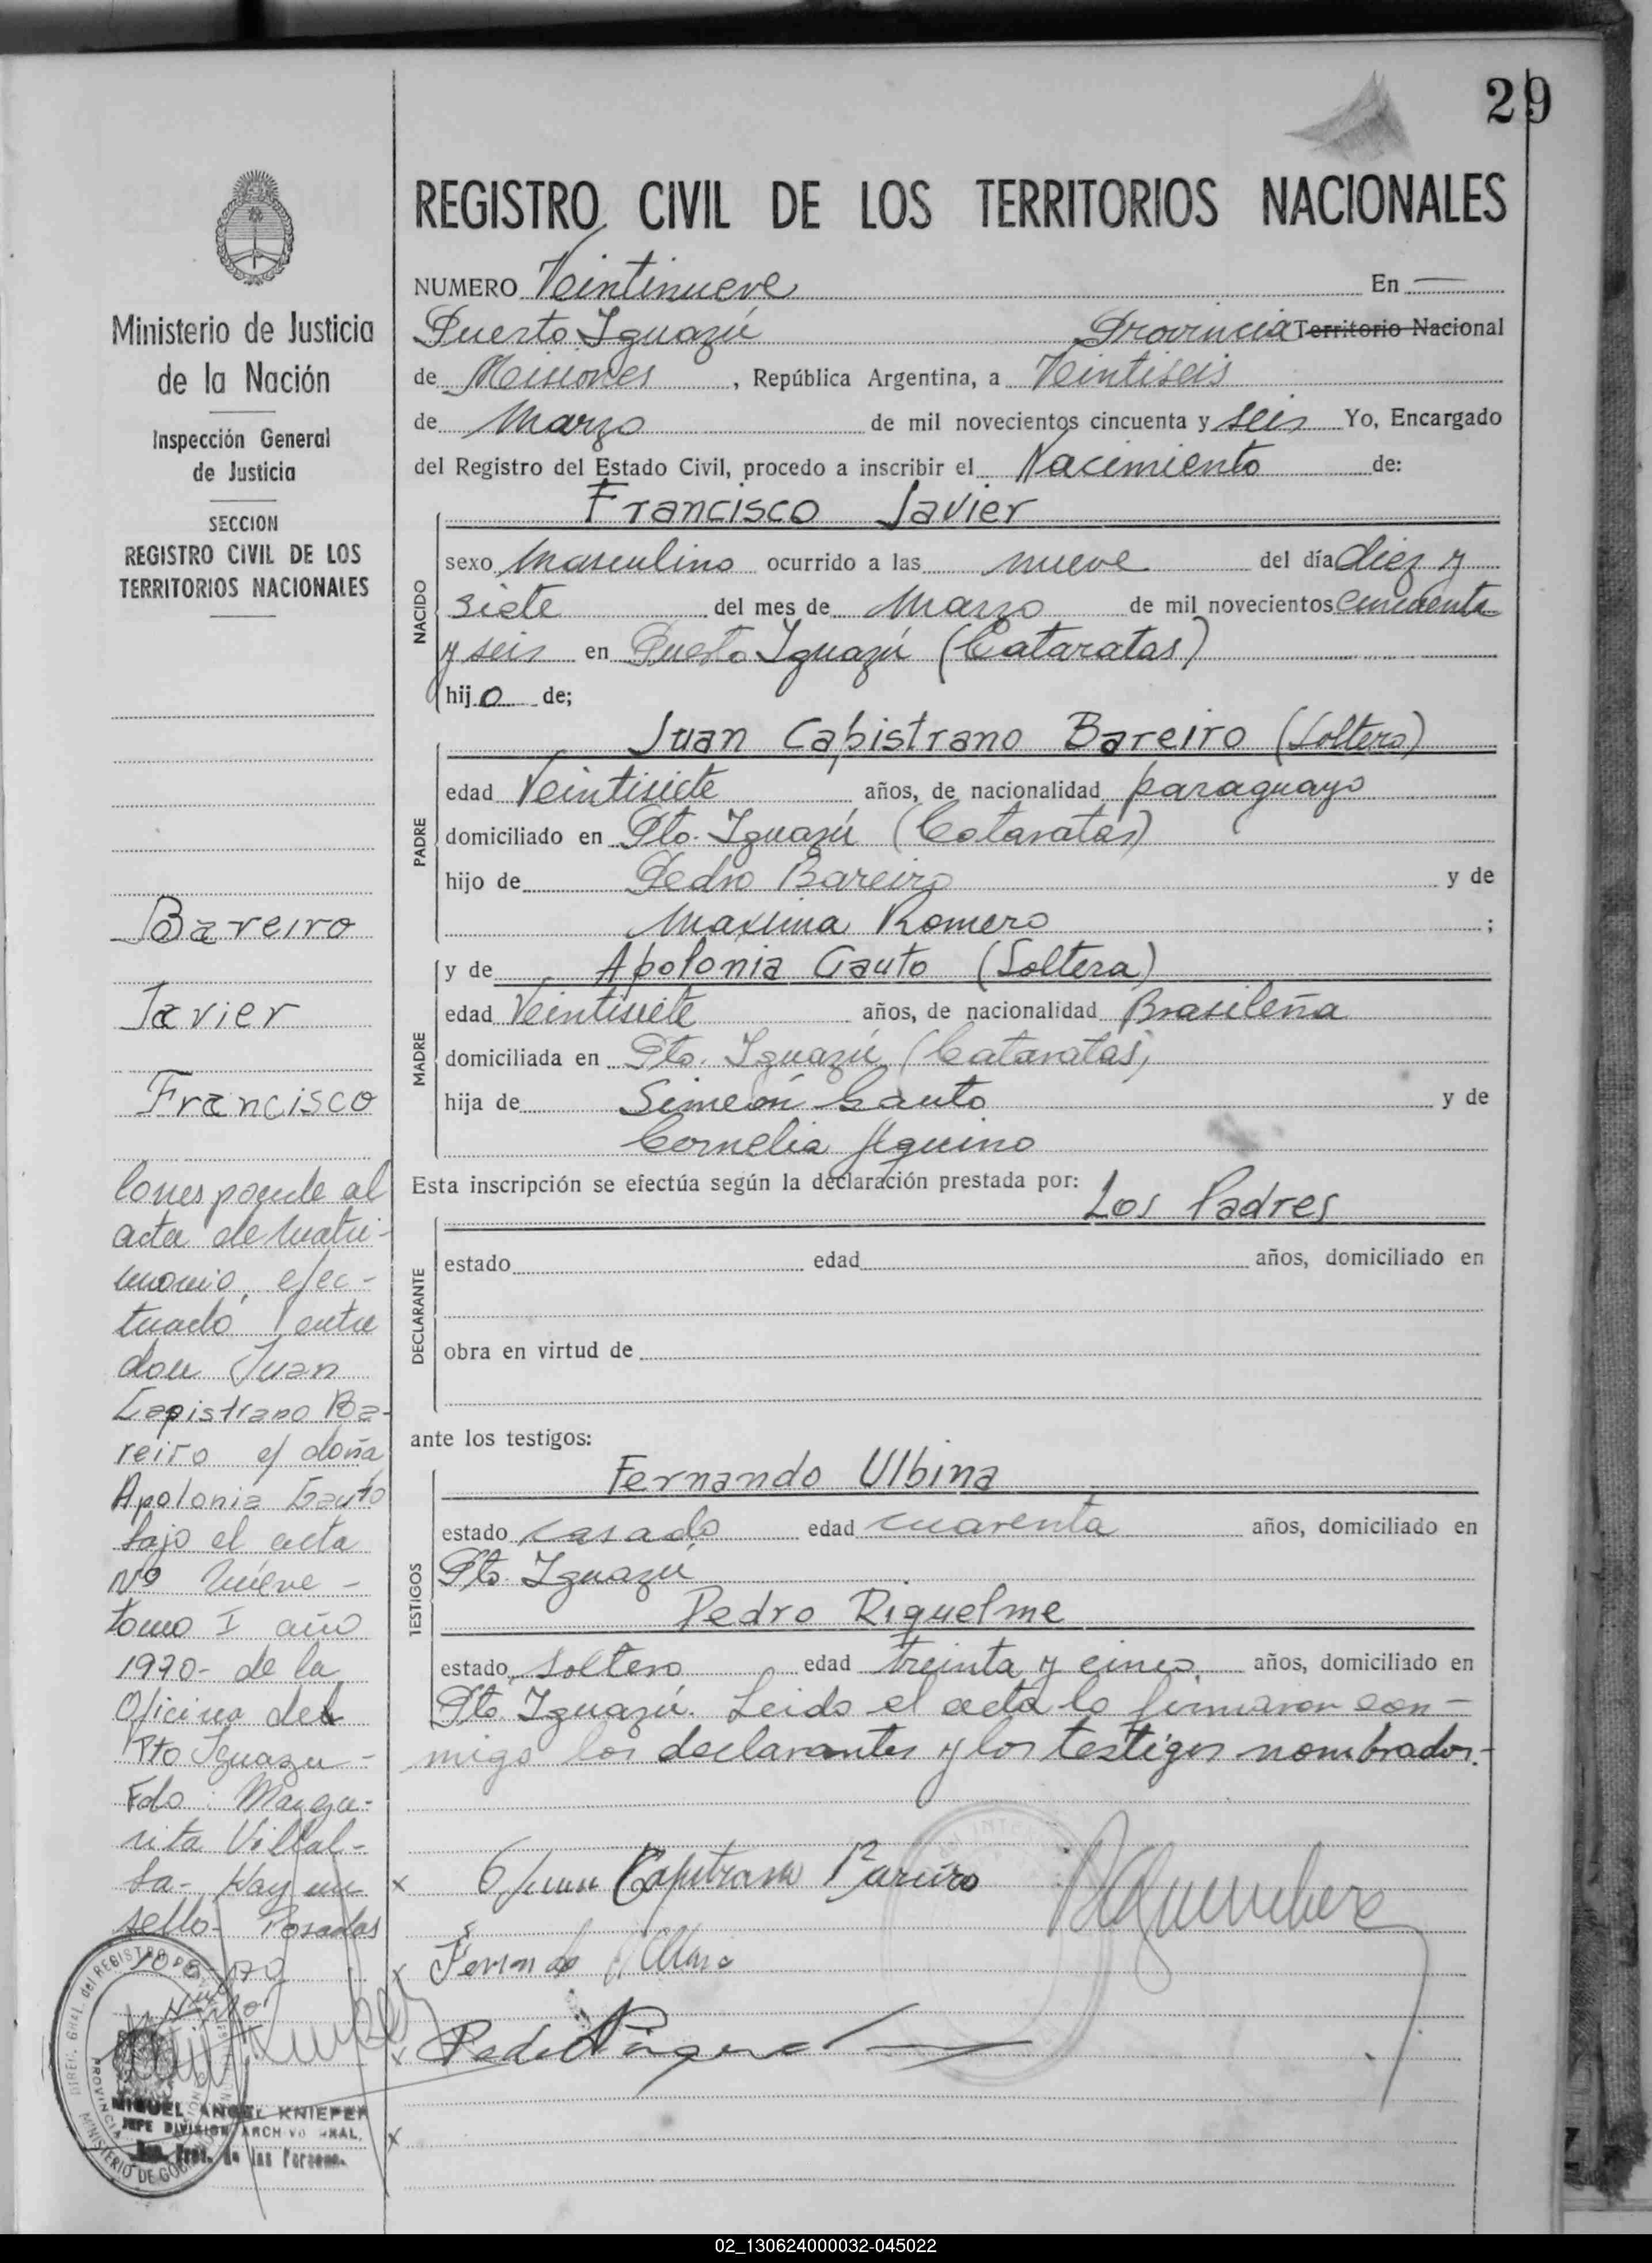 29
REGISTRO CIVIL DE LOS TERRITORIOS NACIONALES
Ministerio de Justicia
de la Nación
Inspección General
de Justicia
SECCION
REGISTRO CIVIL DE LOS
TERRITORIOS NACIONALES
Bareiro
Javier
Francisco
Corresponde al
acta de matri-
monio, efec-
tuado entre
don Juan
Capistrano Ba-
reiro c/ doña
Apolonia Gauto
bajo el acta
Nº Nueve -
tomo I año
1970- de la
Oficina del
Pto Iguazu -
Fdo: Marga-
rita Villal-
ba- Hay un
sello- Posadas
MIGUEL ANGEL KNIEPER
JEFE DIVISION ARCHIVO GRAL.
de las Personas
NUMERO Veintinueve En —
Puerto Iguazú Provincia Territorio Nacional
de Misiones, República Argentina, a Veintiseis
de Marzo de mil novecientos cincuenta y seis Yo, Encargado
del Registro del Estado Civil, procedo a inscribir el Nacimiento de:
NACIDO
Francisco Javier
sexo Masculino ocurrido a las nueve del día diez y
siete del mes de Marzo de mil novecientos cincuenta
y seis en Puerto Iguazú (Cataratas)
hijo de;
PADRE
Juan Capistrano Bareiro (Soltero)
edad Veintisiete años, de nacionalidad paraguayo
domiciliado en Pto. Iguazú (Cataratas)
hijo de Pedro Bareiro y de
Maxima Romero ;
MADRE
y de Apolonia Gauto (Soltera)
edad Veintisiete años, de nacionalidad Brasileña
domiciliada en Pto. Iguazú (Cataratas)
hija de Simeón Gauto y de
Cornelia Aquino
Esta inscripción se efectúa según la declaración prestada por:
Los Padres
DECLARANTE
estado edad años, domiciliado en
obra en virtud de
ante los testigos:
TESTIGOS
Fernando Ulbina
estado casado edad cuarenta años, domiciliado en
Pto. Iguazú
Pedro Riquelme
estado soltero edad treinta y cinco años, domiciliado en
Pto. Iguazú. Leida el acta la firmaron con-
migo los declarantes y los testigos nombrados.-
x Juan Capistrano Bareiro
x Fernando
x
x
02_130624000032-045022